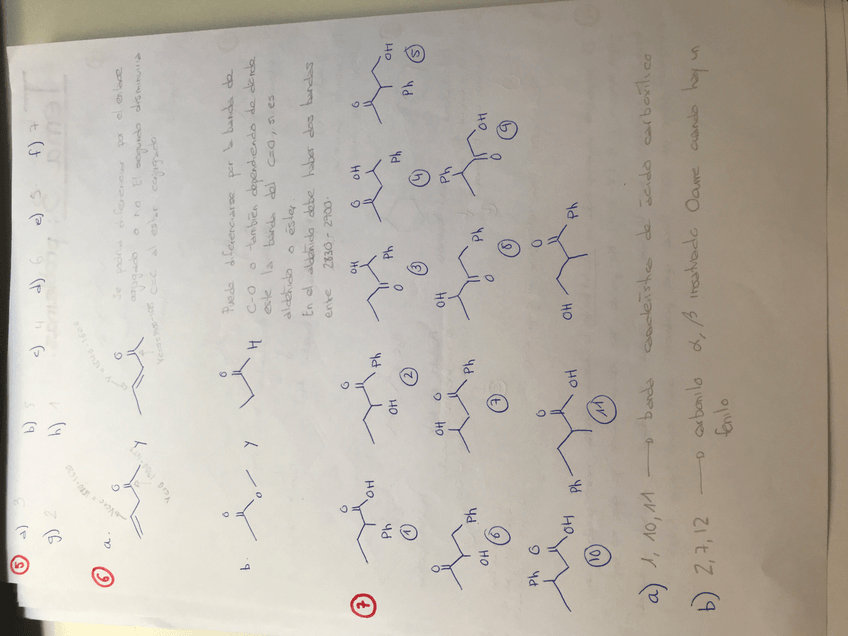 ⑤ a) 3 b) 5 c) 4 d) 6 e) 5 f) 7
g) 2 h) 1
⑥ a. O Y O
Se podría diferenciar por el enlace
conjugado o no El segundo disminuiría
al estar conjugado
b. O O Y O H
Puede diferenciarse por la banda de
C-O o también dependiendo de donde
este la banda del C=O, si es
aldehído o éster.
En el aldehído debe haber dos bandas
entre 2830-2900.
⑦ O OH Ph ① O OH Ph ② OH O Ph ③ O OH Ph ④ O Ph OH ⑤
O OH Ph ⑥ OH O Ph ⑦ OH O Ph ⑧ Ph O OH ⑨
Ph O OH ⑩ Ph O OH ⑪ OH O Ph
a) 1, 10, 11 → banda característica de ácido carboxílico
b) 2, 7, 12 → carbonilo α, β insaturado Ocurre cuando hay un
fenilo